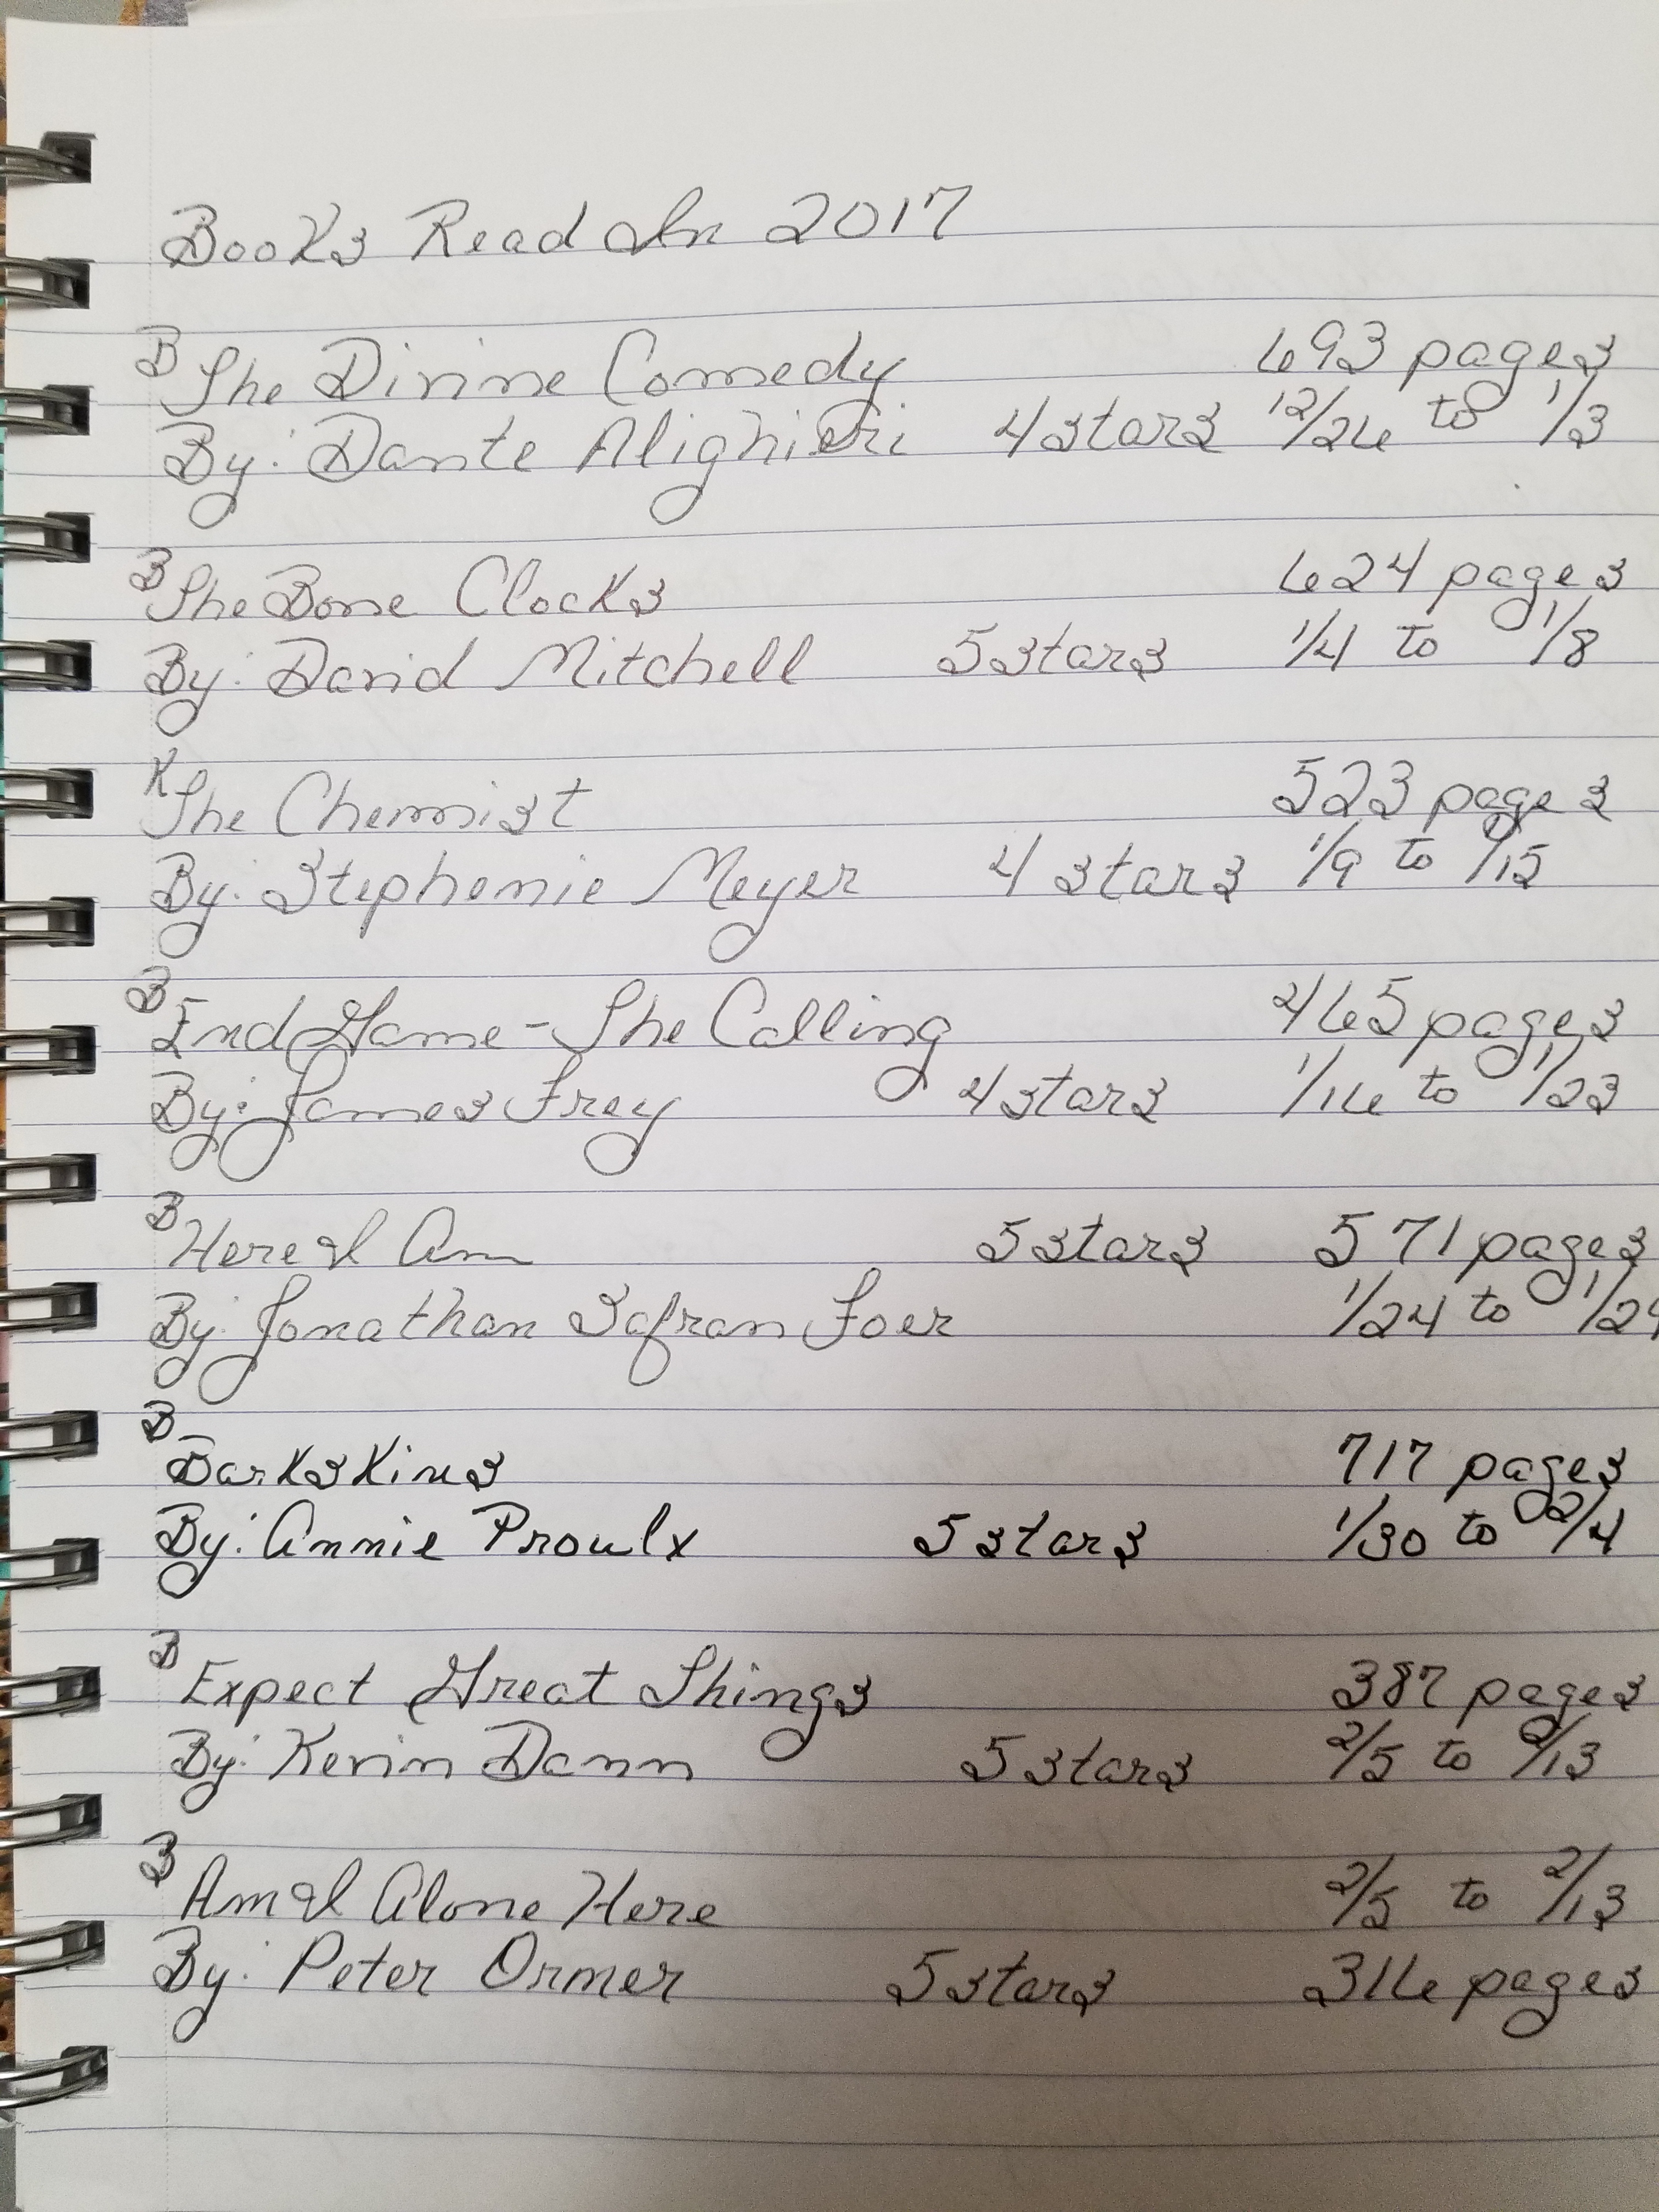 Books Read In 2017
B The Divine Comedy 693 pages
By: Dante Alighieri 4 stars 12/26 to 1/3
B The Bone Clocks 624 pages
By: David Mitchell 5 stars 1/4 to 1/8
K The Chemist 523 pages
By: Stephenie Meyer 4 stars 1/9 to 1/15
B End Game - The Calling 465 pages
By: James Frey 4 stars 1/16 to 1/23
B Here I Am 5 stars 571 pages
By: Jonathan Safran Foer 1/24 to
B Barkskins 717 pages
By: Annie Proulx 5 stars 1/30 to 2/4
B Expect Great Things 387 pages
By: Kevin Dann 5 stars 2/5 to 2/13
B Am I Alone Here 2/5 to 2/13
By: Peter Ormer 5 stars 316 pages